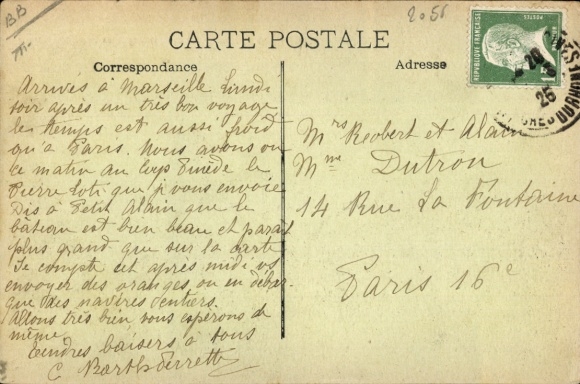 BB
2056
CARTE POSTALE
Correspondance
Adresse
REPUBLIQUE FRANÇAISE
POSTES
15c
25
Arrivés à Marseille Lundi
soir après un très bon voyage
le temps est aussi froid
qu'à Paris. Nous avons vu
ce matin au Cap Pinède le
Pierre Loti que j vous envoie
Dis à Petit Alain que le
bâteau est bien beau et parait
plus grand que sur la carte
Je compte cet après midi vs
envoyer des oranges, on en débar-
que des navires entiers.
Allons très bien vous espérons de
même
Tendres baisers à tous
Mrs Robert et Alain
Mme Dutron
14 Rue La Fontaine
Paris 16e